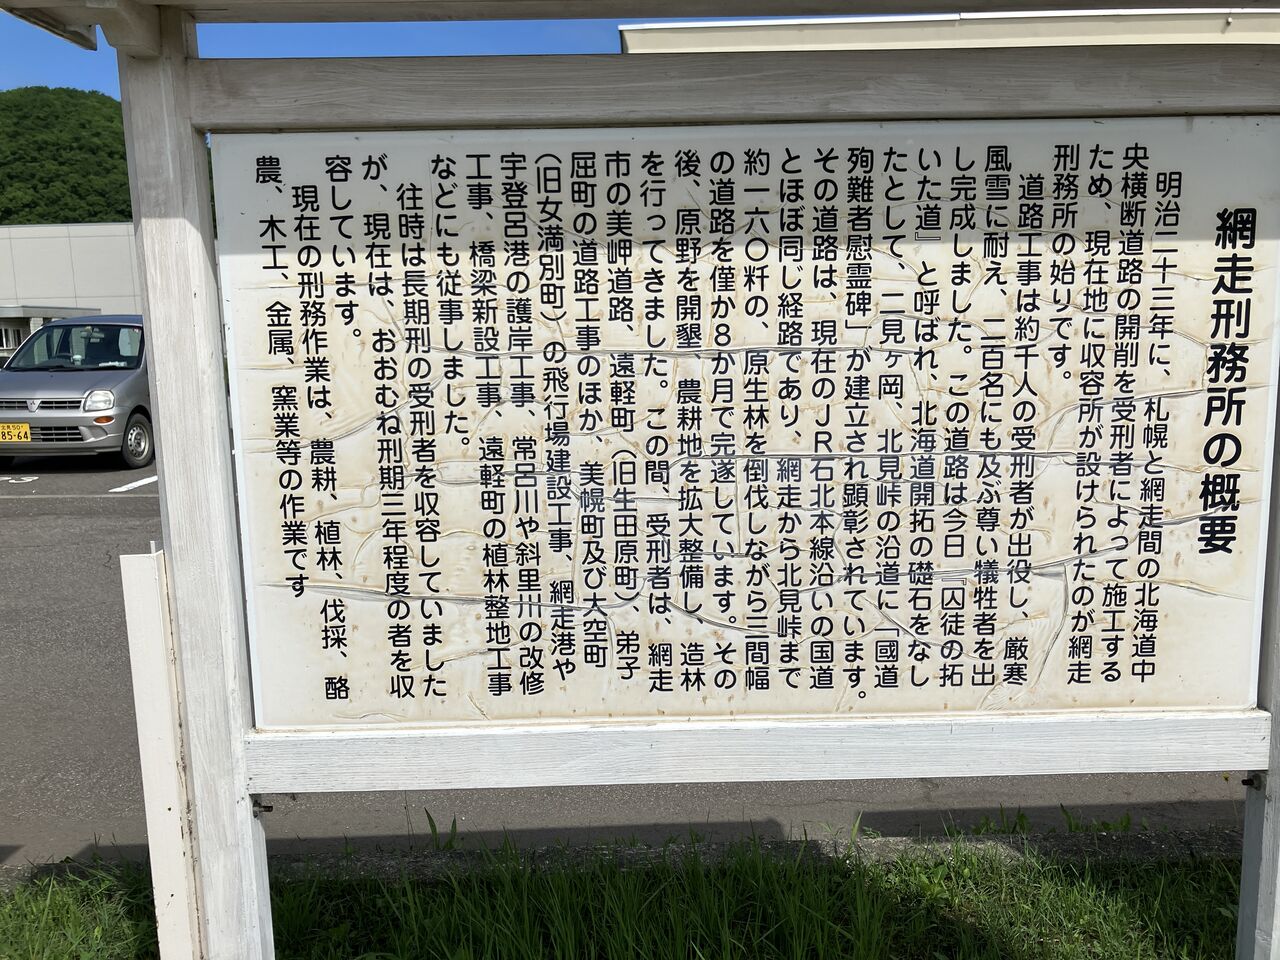 網走刑務所の概要
明治二十三年に、札幌と網走間の北海道中
央横断道路の開削を受刑者によって施工する
ため、現在地に収容所が設けられたのが網走
刑務所の始りです。
道路工事は約千人の受刑者が出役し、厳寒
風雪に耐え、二百名にも及ぶ尊い犠牲者を出
し完成しました。この道路は今日『囚徒の拓
いた道』と呼ばれ、北海道開拓の礎石をなし
たとして、二見ヶ岡、北見峠の沿道に「國道
殉難者慰霊碑」が建立され顕彰されています。
その道路は、現在のJR石北本線沿いの国道
とほぼ同じ経路であり、網走から北見峠まで
約一六〇粁の、原生林を倒伐しながら三間幅
の道路を僅か8か月で完遂しています。その
後、原野を開墾、農耕地を拡大整備し、造林
を行ってきました。この間、受刑者は、網走
市の美岬道路、遠軽町（旧生田原町）、弟子
屈町の道路工事のほか、美幌町及び大空町
（旧女満別町）の飛行場建設工事、網走港や
宇登呂港の護岸工事、常呂川や斜里川の改修
工事、橋梁新設工事、遠軽町の植林整地工事
などにも従事しました。
往時は長期刑の受刑者を収容していました
が、現在は、おおむね刑期三年程度の者を収
容しています。
現在の刑務作業は、農耕、植林、伐採、酪
農、木工、金属、窯業等の作業です
85-64